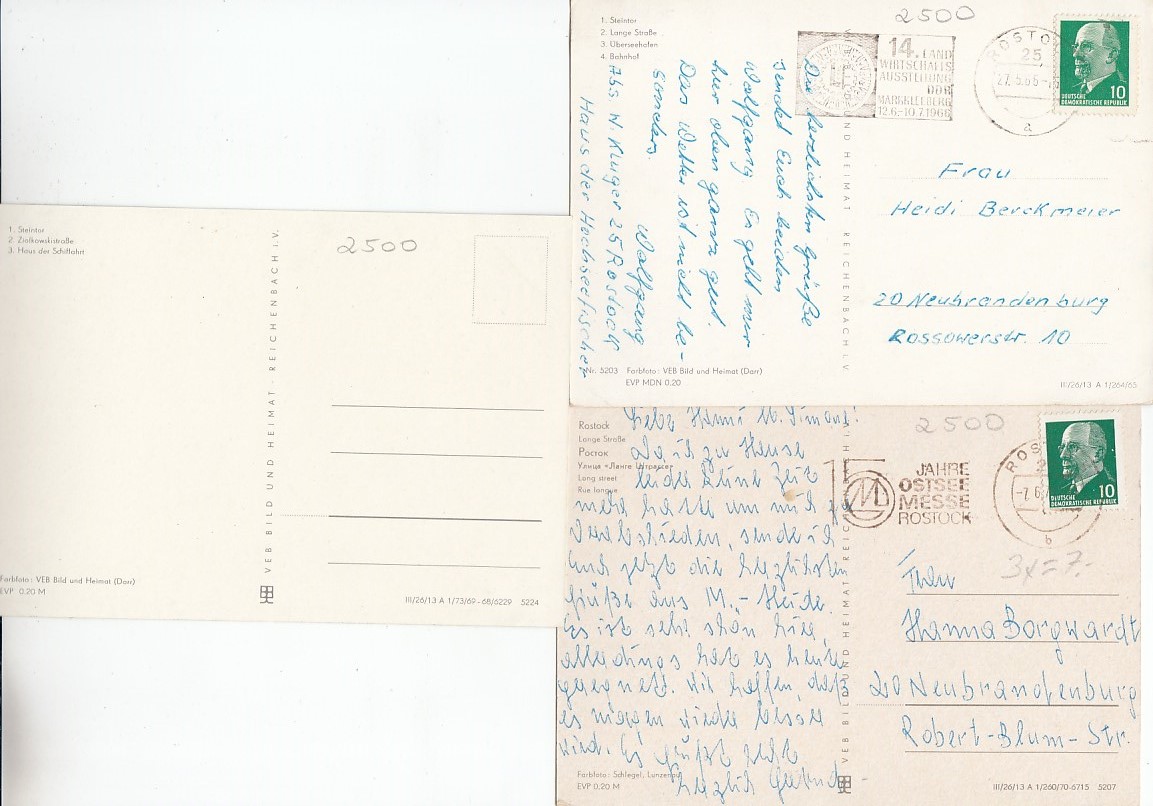 1. Steintor
2. Ziolkowskistraße
3. Haus der Schiffahrt
2500
VEB BILD UND HEIMAT · REICHENBACH i. V.
Farbfoto: VEB Bild und Heimat (Darr)
EVP 0.20 M
III/26/13 A 1/73/69 - 68/6229 5224
1. Steintor
2. Lange Straße
3. Überseehafen
4. Bahnhof
2500
14. LAND
WIRTSCHAFTS
AUSSTELLUNG
DDR
MARKKLEEBERG
12.6.-10.7.1966
ROSTO
25
27. 5.66
a
DEUTSCHE
DEMOKRATISCHE REPUBLIK
10
Die herzlichsten Grüße
sendet Euch beiden
Wolfgang. Es geht mir
hier oben ganz gut.
Das Wetter ist nicht be-
sonders.
Wolfgang
Abs. W. Kluger 25 Rostock
Haus der Hochseefischer
ND HEIMAT REICHENBACH i. V.
Frau
Heidi Berckmeier
20 Neubrandenburg
Rossowerstr. 10
Nr. 5203 Farbfoto: VEB Bild und Heimat (Darr)
EVP MDN 0.20
III/26/13 A 1/264/65
Rostock
Lange Straße
Росток
Улица «Ланге Штрассе»
Long street
Rue longue
2500
15 JAHRE
OSTSEE
MESSE
ROSTOCK
ROS
-7.6
b
DEUTSCHE
DEMOKRATISCHE REPUBLIK
10
3x = 7.-
Liebe Hanni u. Simone!
Da ich zu Hause
leider keine Zeit
mehr hatte um mich zu
verabschieden, sende ich
Euch jetzt die herzlichsten
Grüße aus M.-Heide.
Es ist sehr schön hier,
allerdings hat es heute
geregnet. Wir hoffen, daß
es morgen wieder besser
wird. Es grüßt recht
herzlich
VEB BILD UND HEIMAT REICHENBACH i. V.
Frau
Hanna Borgwardt
20 Neubrandenburg
Robert-Blum-Str.
Farbfoto: Schlegel, Lunzenau
EVP 0.20 M
III/26/13 A 1/260/70-6715 5207